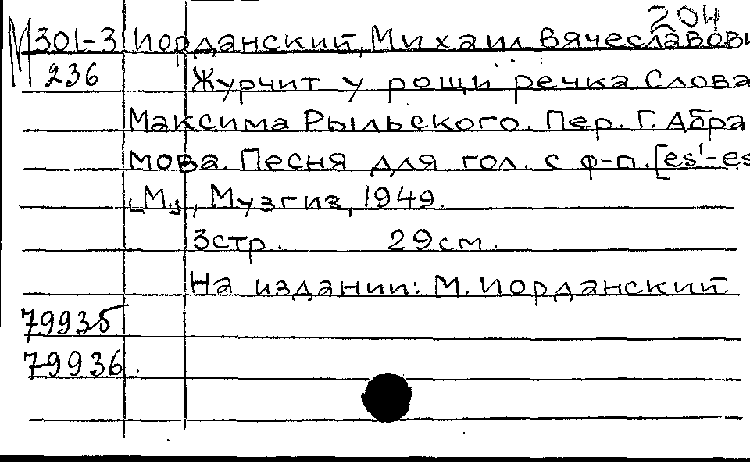 204
М 301-3 Иорданский, Михаил Вячеславови
236 Журчит у рощи речка Слова
Максима Рыльского. Пер. Г. Абра
мова. Песня для гол. с ф-п. [es'-es
[М.], Музгиз, 1949.
3стр. 29см.
На издании: М. Иорданский
79935
79936.